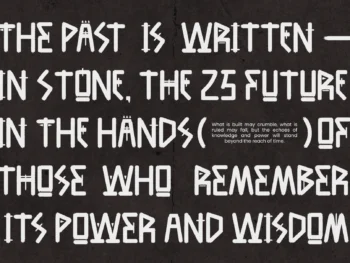 THE PAST IS WRITTEN —
IN STONE, THE 25 FUTURE
IN THE HANDS(
What is built may crumble, what is
ruled may fall, but the echoes of
knowledge and power will stand
beyond the reach of time.
)OF
THOSE WHO REMEMBER
ITS POWER AND WISDOM